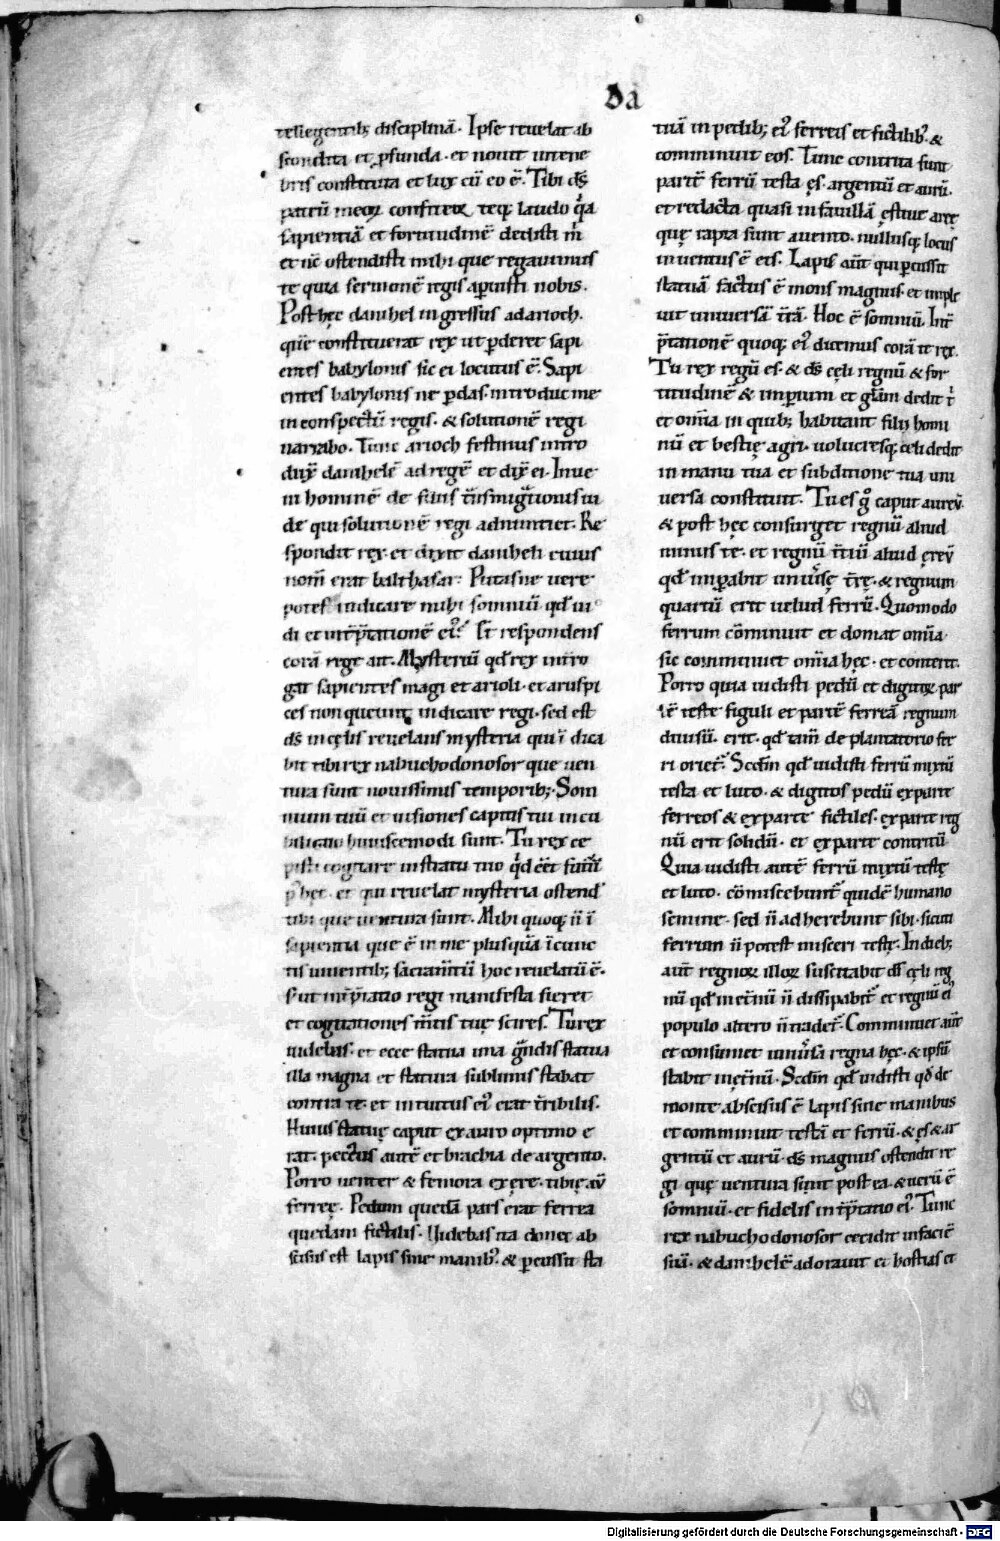 Da
tellegentib; disciplinā. Ipse reuelat ab
scondita et ꝓfunda. et nouit in tene
bris constituta et lux cū eo ē. Tibi ds̄
patrū meoꝝ confiteoꝛ teq; laudo q̄a
sapientiā et fortitudinē dedisti m̄
et nc̄ ostendisti mihi que rogauimus
te quia sermonē regis aꝑuisti nobis.
Post hęc danihel ingressus ad arioch.
quē constituerat rex ut ꝑderet sapi
entes babylonis sic ei locutus ē. Sapi
entes babylonis ne ꝑdas. introduc me
in conspectū regis. & solutionē regi
narrabo. Tunc arioch festinus intro
dux̄ danihelē ad regē et dix̄ ei. Inue
ni hominē de filiis trāsmigrationis iu
de qui solutionē regi adnuntiet. Re
spondit rex. et dixit daniheli cuius
nom̄ erat balthasar. Putasne uere
potes indicare mihi somniū qd̄ ui
di et int̄p̄tationē eiꝰ. Et respondens
corā rege ait. Mysteriū qd̄ rex intro
gat sapientes magi et arioli. et aruspi
ces non queunt indicare regi. sed est
ds̄ in cęlis reuelans mysteria qui īdica
bit tibi rex nabuchodonosor que uen
tura sunt nouissimis temporib;. Som
nium tuū et uisiones capitis tui in cu
bili tuo huiuscemodi sunt. Tu rex ce
pisti cogitare in stratu tuo qd̄ eēt futurū
p̄ hęc. et qui reuelat mysteria ostend̄
tibi que uentura sunt. Mihi quoq; n̄ ī
sapientia que ē in me plusquā ī cunc
tis uiuentib; sacram̄tū hoc reuelatū ē.
s; ut int̄p̄tatio regi manifesta fieret
et cogitationes m̄tis tuę scires. Tu rex
uidebas. et ecce statua una grandis statua
illa magna et statura sublimis stabat
contra te. et intuitus eiꝰ erat t̄ribilis.
Huius statuę caput ex auro optimo e
rat. pectus autē et brachia de argento.
Porro uenter & femora ex ęre. tibię aū
ferreę. Pedum quedā pars erat ferrea
quedam fictilis. Uidebas ita donec ab
scisus est lapis sine manibꝰ. & percussit sta
tuā in pedib; eiꝰ ferreis et fictilibꝰ. &
comminuit eos. Tunc contrita sunt
paritē ferrū testa ęs. argentū et aurū.
et redacta quasi in fauillā ęstiuę areę
quę rapta sunt a uento. nullusq; locus
inuentus ē eis. Lapis aūt qui ꝑcussit
statuā factus ē mons magnus. et imple
uit uniuersā t̄rā. Hoc ē somniū. Int̄
p̄tationē quoq; eiꝰ dicemus corā te rex.
Tu rex regū es. & ds̄ cęli regnū & for
titudinē & imperium et glām dedit t̄
et om̄ia in quib; habitant filij homi
nū et bestię agri. uolucresq; celi dedit
in manu tua et sub ditione tua uni
uersa constituit. Tu es g̊ caput aureū.
& post hęc consurget regnū aliud
minus te. et regnū t̄tiū aliud ęreū
qd̄ imꝑabit uniūsę t̄rę. & regnum
quartū erit uelud ferrū. Quomodo
ferrum cōminuit et domat om̄ia
sic comminuet om̄ia hęc. et conteret.
Porro quia uidisti pedū et digitoꝝ par
tē testę figuli et partē ferreā regnum
diuisū. erit. qd̄ tam̄ de plantatorio fer
ri oriet̄. Scdm̄ qd̄ uidisti ferrū mixtū
testa et luto. & digitos pedū ex parte
ferreos & ex parte fictiles. ex parte reg
nū erit solidū. et ex parte contritū
Quia uidisti autē ferrū mixtū testę
et luto. cōmiscebunt̄ quidē humano
semine. sed n̄ adherebunt sibi. sicuti
ferrum n̄ potest misceri testę. In dieb;
aūt regnoꝝ illoꝝ suscitabit ds̄ cęli reg
nū qd̄ in et̄nū n̄ dissipabit̄. et regnū eiꝰ
populo altero n̄ tradet̄. Comminuet aūt
et consumet uniūsa regna hęc. & ipsū
stabit in ęt̄nū. Scdm̄ qd̄ uidisti qd̄ de
monte abscisus ē lapis sine manibus
et comminuit testā et ferrū. & ęs & ar
gentū et aurū. ds̄ magnus ostendit re
gi quę uentura sunt post ea. & uerū ē
somniū. et fidelis int̄p̄tatio eiꝰ. Tunc
rex nabuchodonosor cecidit in faciē
suā. & danihelē adorauit et hostias et
Digitalisierung gefördert durch die Deutsche Forschungsgemeinschaft - DFG